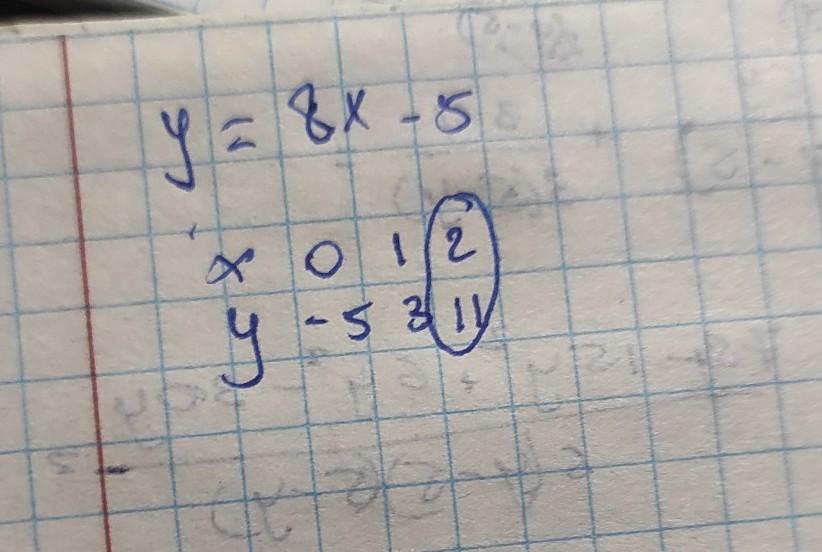 y = 8x - 5
x 0 1 2
y -5 3 11